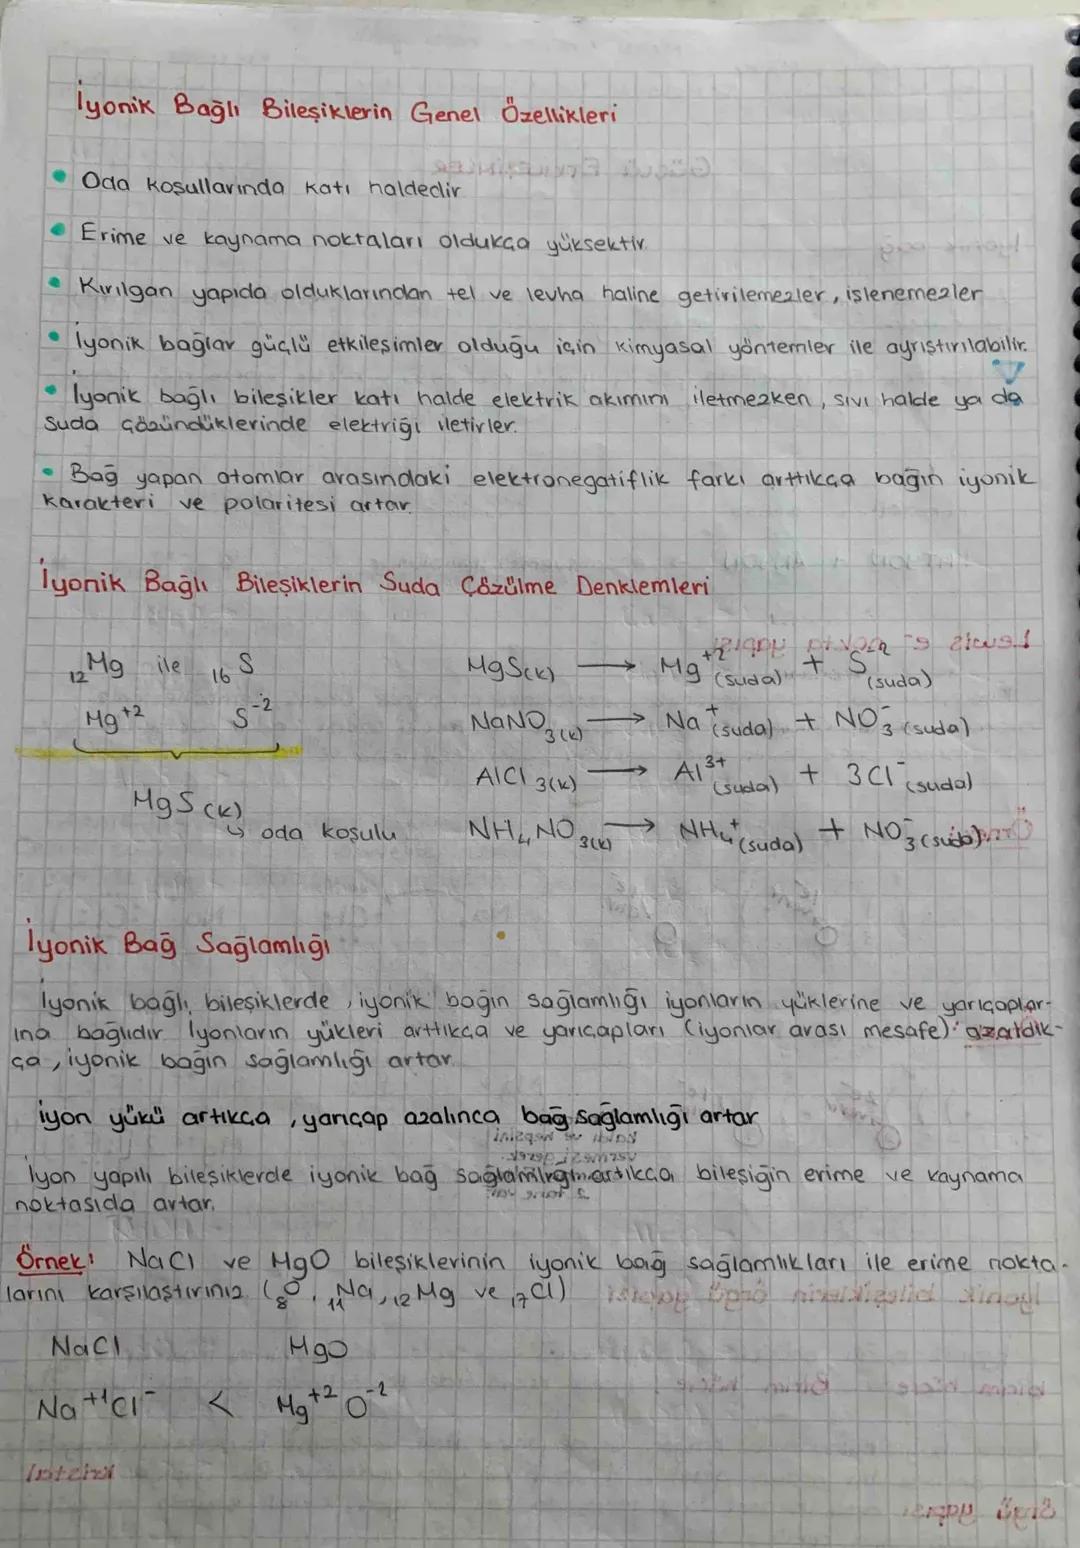 İyonik Bağlı Bileşiklerin Genel Özellikleri
• Oda koşullarında katı haldedir.
• Erime ve kaynama noktaları oldukça yüksektir.
• Kırılgan yapıda olduklarından tel ve levha haline getirilemezler, işlenemezler
• İyonik bağlar güçlü etkileşimler olduğu için kimyasal yöntemler ile ayrıştırılabilir.
• İyonik bağlı bileşikler katı halde elektrik akımını iletmezken, sıvı halde ya da
suda çözündüklerinde elektriği iletirler.
• Bağ yapan atomlar arasındaki elektronegatiflik farkı arttıkça bağın iyonik
karakteri ve polaritesi artar.
İyonik Bağlı Bileşiklerin Suda Çözülme Denklemleri
₁₂Mg ile ₁₆S
Mg⁺² S⁻²
MgS(k)
↳ oda koşulu
MgS(k) → Mg⁺²(suda) + S⁻²(suda)
NaNO₃(k) → Na⁺(suda) + NO₃⁻(suda)
AlCl₃(k) → Al³⁺(suda) + 3Cl⁻(suda)
NH₄NO₃(k) → NH₄⁺(suda) + NO₃⁻(suda)
İyonik Bağ Sağlamlığı
İyonik bağlı, bileşiklerde, iyonik bağın sağlamlığı iyonların yüklerine ve yarıçaplar-
ına bağlıdır. İyonların yükleri arttıkça ve yarıçapları (iyonlar arası mesafe) azaldık-
ça, iyonik bağın sağlamlığı artar.
iyon yükü artıkça, yarıçap azalınca bağ sağlamlığı artar
İyon yapılı bileşiklerde iyonik bağ sağlamlığı artıkça bileşiğin erime ve kaynama
noktasıda artar.
Örnek! NaCl ve MgO bileşiklerinin iyonik bağ sağlamlıkları ile erime nokta-
larını karşılaştırınız. (₈O, ₁₁Na, ₁₂Mg ve ₁₇Cl)
NaCl MgO
Na⁺¹Cl⁻ < Mg⁺²O⁻²